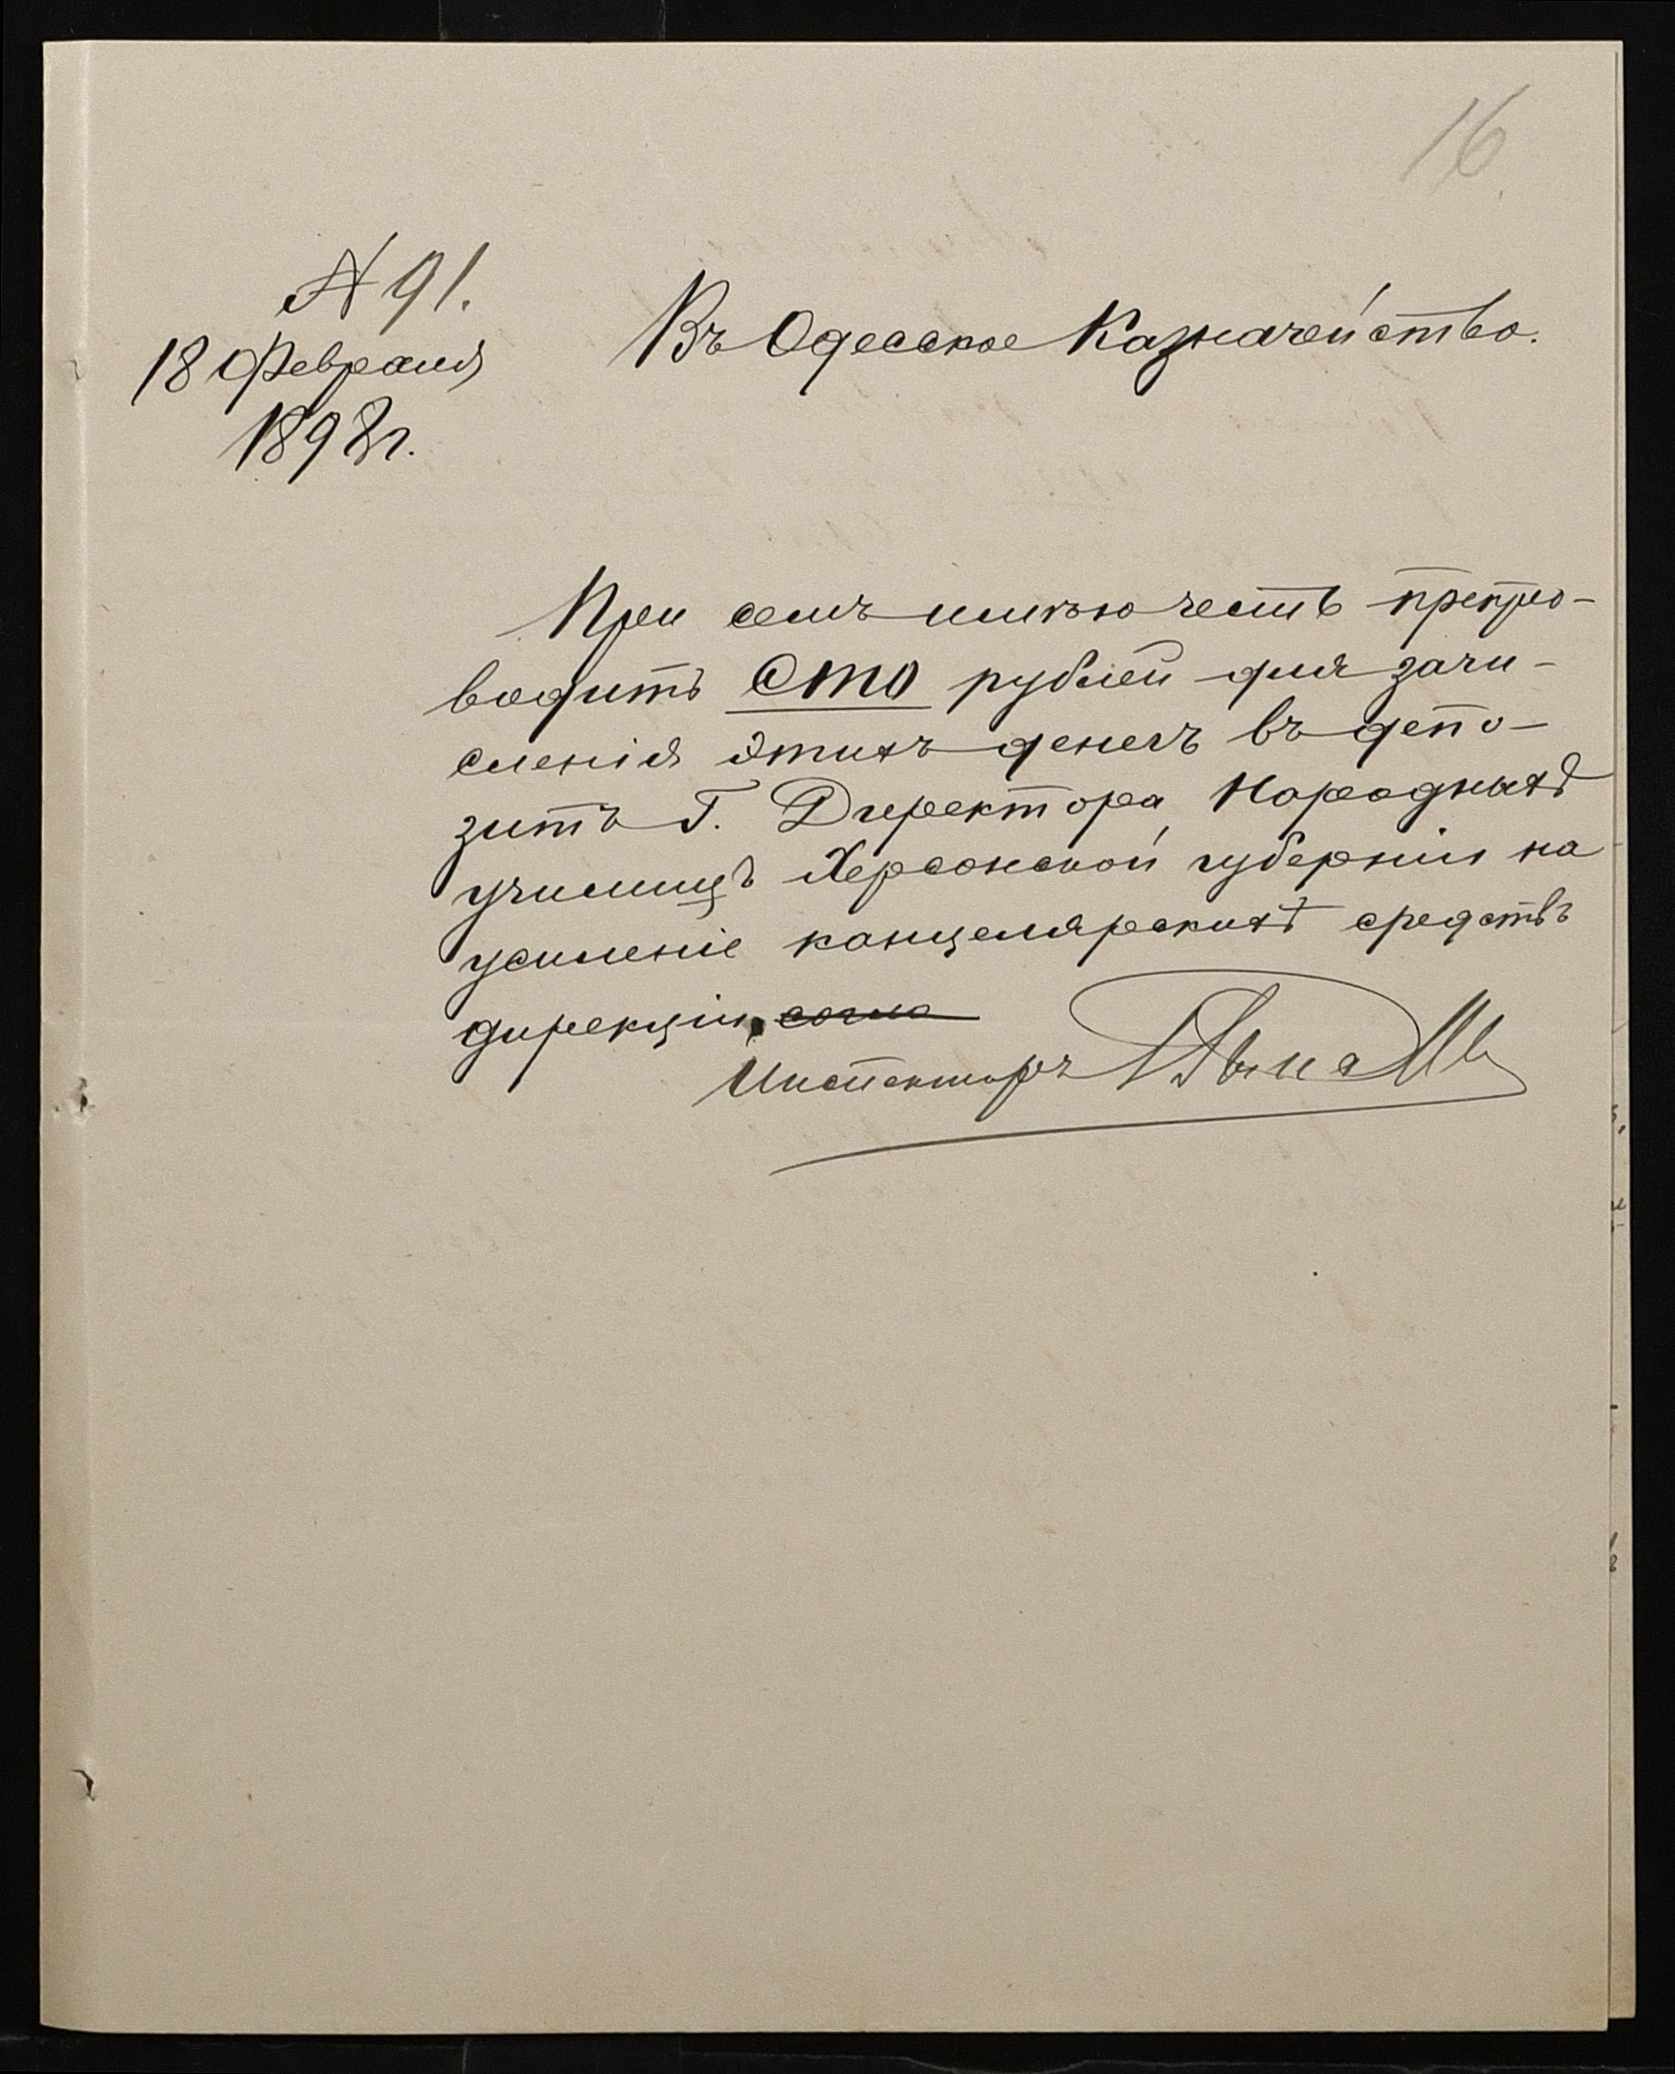 16
№ 91.
18 Февраля
1898 г.
Въ Одесское Казначейство.
При семъ имѣю честь препро-
водить сто рублей для зачи-
сленія этихъ денегъ въ депо-
зитъ Г. Директора Народныхъ
училищъ Херсонской губерніи на
усиленіе канцелярскихъ средствъ
дирекціи. согла
Инспекторъ